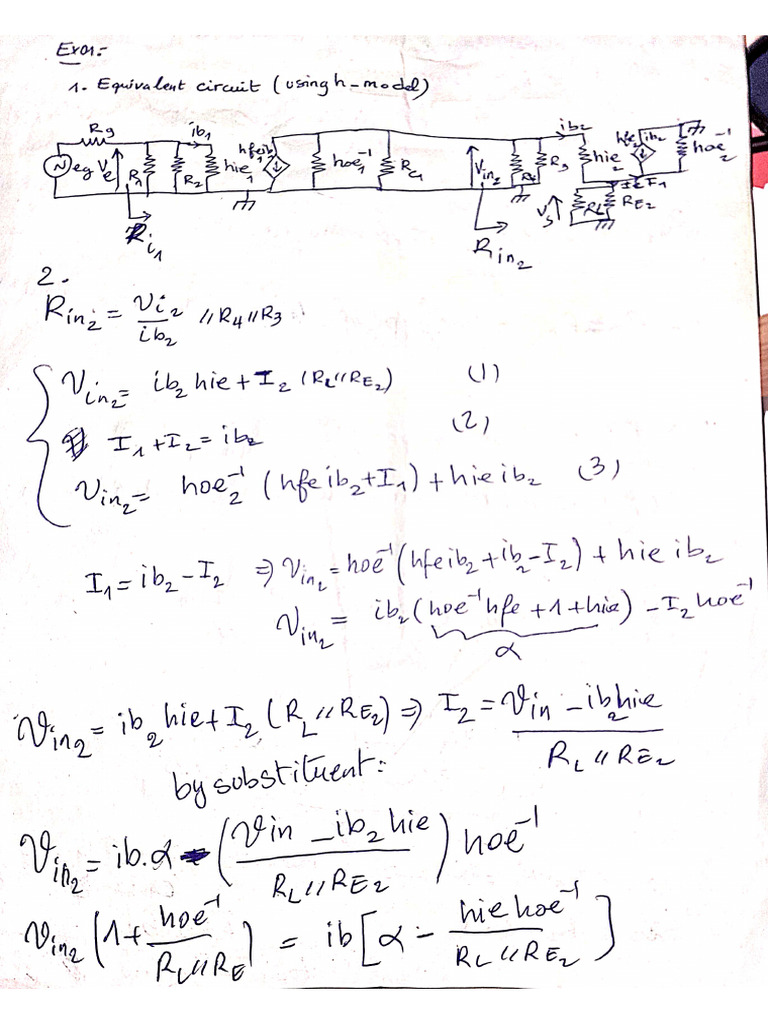 Exo1:-
1. Equivalent circuit (using h-model)
Rg ib1 hfeib1 ib2 hfe2 ib2
eg Ve R1 R2 hie1 hoe1^-1 RC1 Vin2 R4 R3 hie2 hoe2^-1
I1
Vs RL RE2
Ri1 Rin2
2.
Rin2 = Vi2/ib2 // R4 // R3
Vin2 = ib2 hie + I2 (RL//RE2) (1)
I1 + I2 = ib2 (2)
Vin2 = hoe2^-1 (hfe ib2 + I1) + hie ib2 (3)
I1 = ib2 - I2 ⇒ Vin2 = hoe^-1 (hfe ib2 + ib2 - I2) + hie ib2
Vin2 = ib2 (hoe^-1 hfe + 1 + hie) - I2 hoe^-1
α
Vin2 = ib2 hie + I2 (RL // RE2) ⇒ I2 = (Vin - ib2 hie)/(RL // RE2)
by substituent:
Vin2 = ib.α - ((Vin - ib2 hie)/(RL // RE2)) hoe^-1
Vin2 (1 + hoe^-1/(RL // RE)) = ib [α - hie hoe^-1/(RL // RE2)]